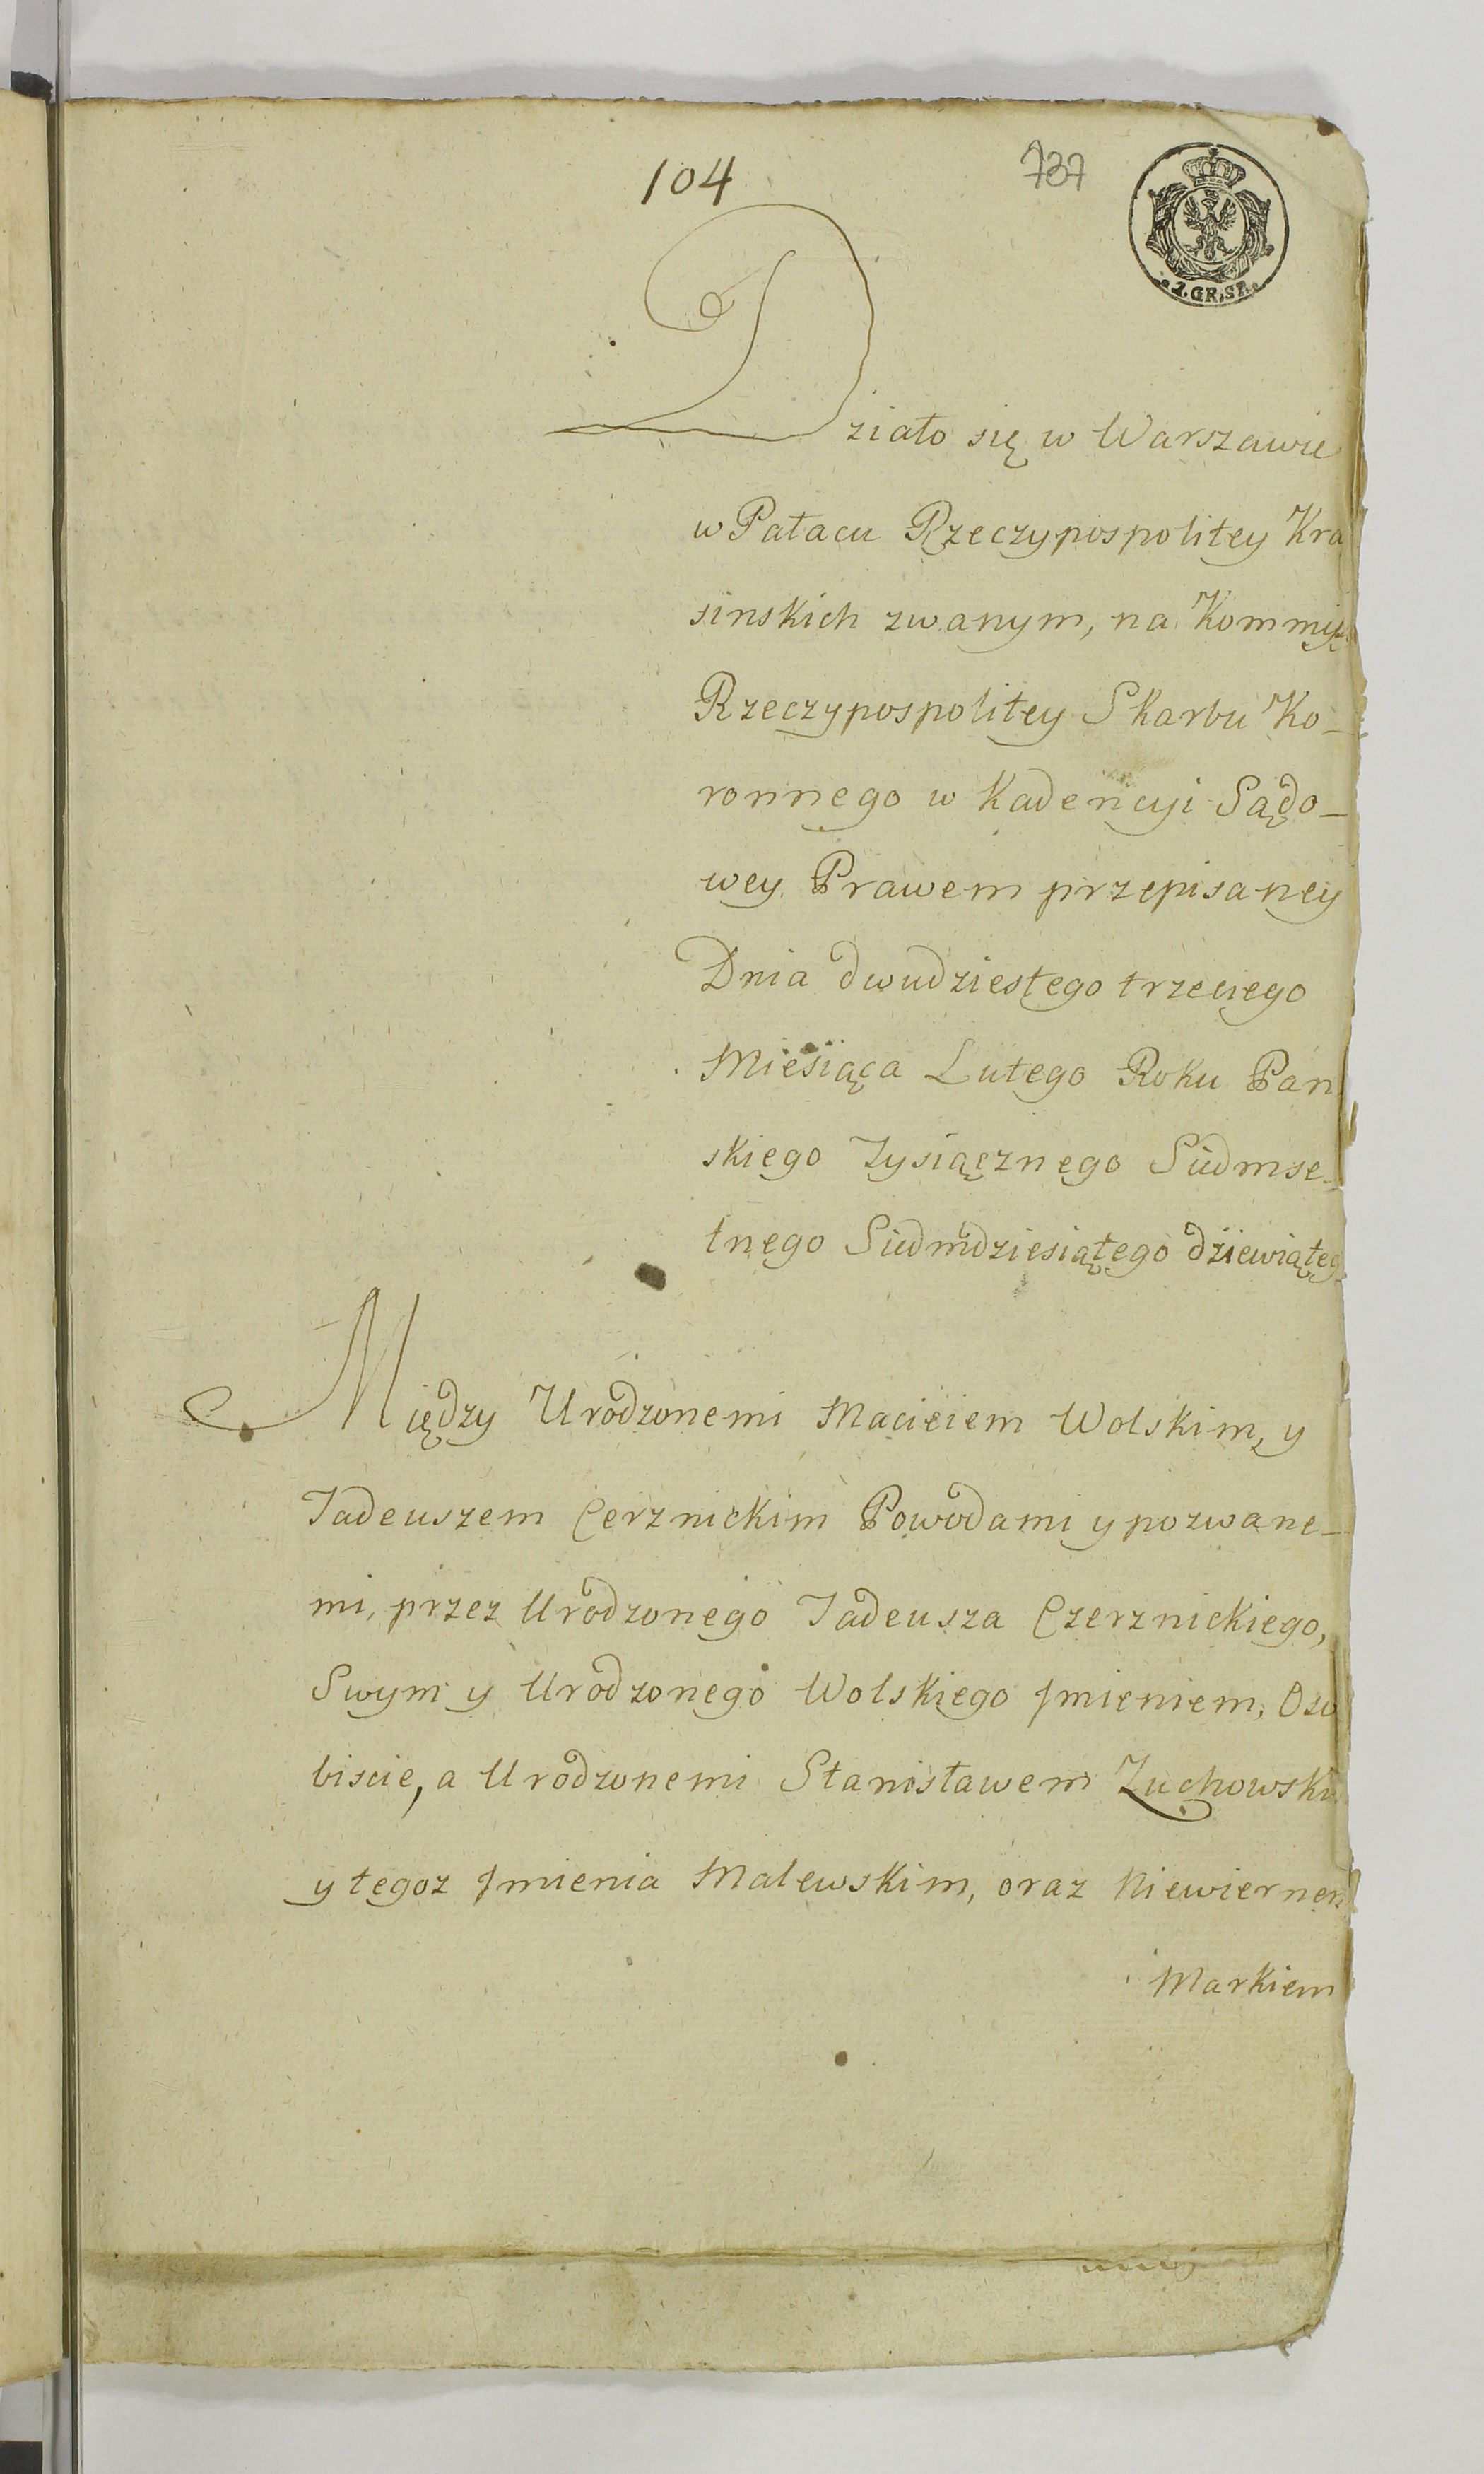 104
737
1.GR.SR.
Działo się w Warszawie
w Pałacu Rzeczypospolitey Kra
sinskich zwanym, na Kommij
Rzeczypospolitey Skarbu Ko_
ronnego w Kadencyi Sądo_
wey Prawem przepisaney
Dnia dwudziestego trzeciego
Miesiąca Lutego Roku Pan
skiego Tysiącznego Siedmse_
tnego Siedmdziesiątego dziewiąteg
Między Urodzonemi Macieiem Wolskim, y
Tadeuszem Cerznickim Powodami y pozwane_
mi, przez Urodzonego Tadeusza Czerznickiego,
Swym y Urodzonego Wolskiego Jmieniem, Oso
biscie, a Urodzonemi Stanisławem Zuchowski
y tegoz Jmienia Malewskim, oraz Niewiernem
Markiem